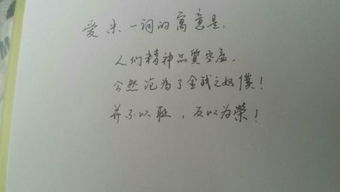 爱米一词的寓意是,
人们精神品質空虚.
公然沦为了金钱之奴僕!
并不以耻,反以为榮!